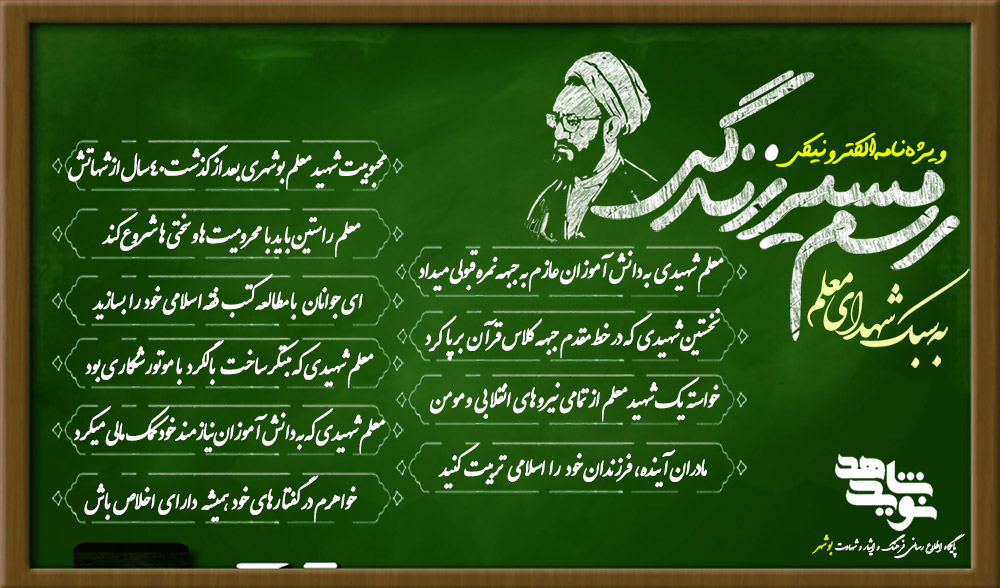 ویژه‌نامه الکترونیکی
رسم مسیر زندگی
به سبک شهدای معلم
معلم شهیدی به دانش آموزان عازم به جبهه نمره قبولی میداد
نخستین شهیدی که در خط مقدم جبهه کلاس قرآن برپا کرد
خواسته یک شهید معلم از تمامی نیروهای انقلابی و مومن
مادران آینده، فرزندان خود را اسلامی تربیت کنید
محبوبیت شهید معلم بوشهری بعد از گذشت ۴۰ سال از شهاتش
معلم راستین باید با محرومیت ها و سختی ها شروع کند
ای جوانان با مطالعه کتب فقه اسلامی خود را بسازید
معلم شهیدی که مبتکر ساخت بالگرد با موتور شکاری بود
معلم شهیدی که به دانش آموزان نیازمند خود کمک مالی میکرد
خواهرم در گفتارهای خود همیشه دارای اخلاص باش
نوید شاهد
پایگاه اطلاع رسانی فرهنگ و ایثار و شهادت بوشهر